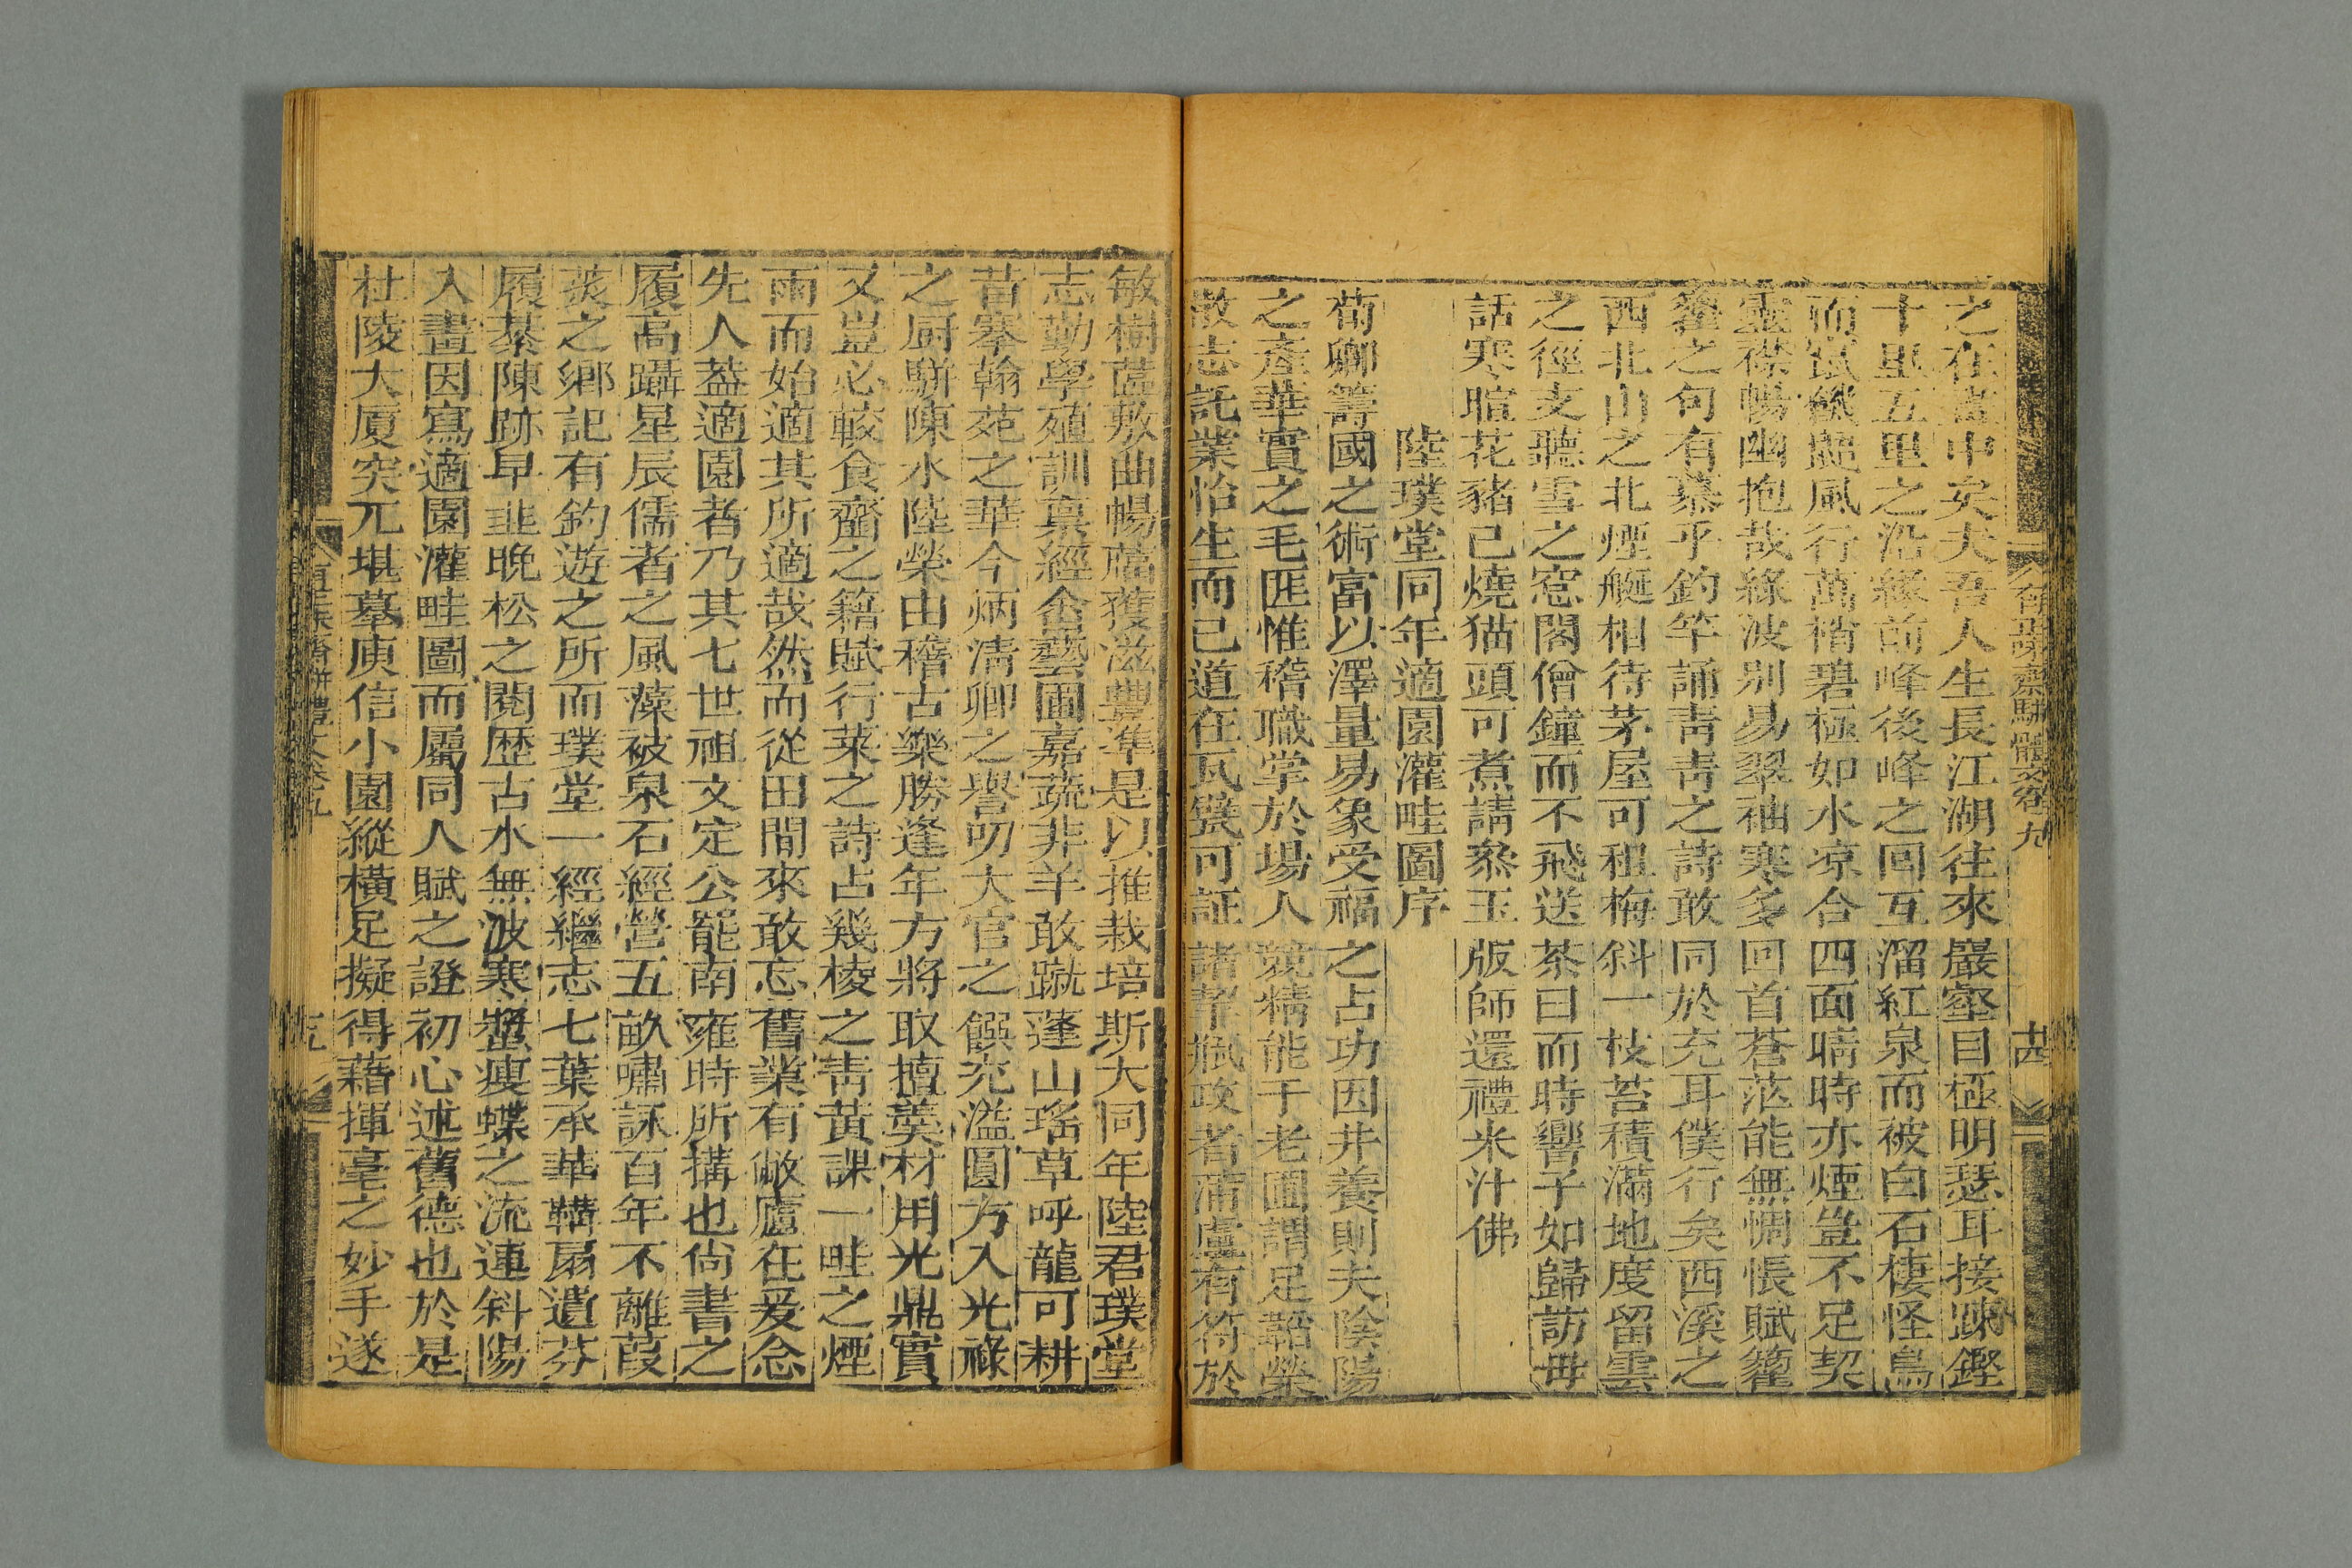 有正味齋駢體文卷九
十四
之在畫中矣夫吾人生長江湖往來巖壑目極明瑟耳接踈鏗
十里五里之沿緣前峰後峰之回互溜紅泉而被白石棲怪鳥
而鼠颷風行萬楷碧極如水凉合四面晴時亦煙豈不足契
靈襟暢幽抱哉綠波别易翠袖寒多回首蒼茫能無惆悵賦籊
籊之句有慕乎釣竿誦靑靑之詩敢同於充耳僕行矣西溪之
西北山之北煙艇相待茅屋可租梅斜一枝苔積滿地度留雲
之徑支聽雪之窓閣僧鐘而不飛送茶日而時響子如歸訪毋
話寒暄花豬已燒猫頭可煮請叅玉版師還禮米汁佛
陸璞堂同年適園灌畦圖序
荀卿籌國之術富以澤量易象受福之占功因井養則夫陰陽
之產華實之毛匪惟稽職掌於場人競精能于老圃謂足韜榮
散志託業怡生而已道在瓦甓可証諸挈瓶政者蒲盧有符於
敏樹蓝敷曲暢穡獲滋豐準是以推栽培斯大同年陸君璞堂
志勤學殖訓稟經畬藝圃嘉蔬非羊敢蹴蓬山瑤草呼龍可耕
昔搴翰苑之華今炳淸卿之譽叨大官之饌充溢圓方入光祿
之厨駢陳水陸榮由稽古樂勝逢年方將取擅羹材用光鼎實
又豈必較食齏之籍賦行菜之詩占幾棱之靑黃課一畦之煙
雨而始適其所適哉然而從田間來敢忘舊業有敝廬在爰念
先人葢適園者乃其七世祖文定公罷南雍時所搆也尙書之
履高躡星辰儒者之風藻被泉石經營五畝嘯詠百年不離葭
菼之鄉記有釣遊之所而璞堂一經繼志七葉承華鞲扇遺芬
履綦陳跡早韭晚松之閱歴古水無波寒螿瘦蝶之流連斜陽
入畫因寫適園灌畦圖而屬同人賦之證初心述舊德也於是
杜陵大厦突兀堪摹庾信小園縱橫足擬得藉揮毫之妙手遂